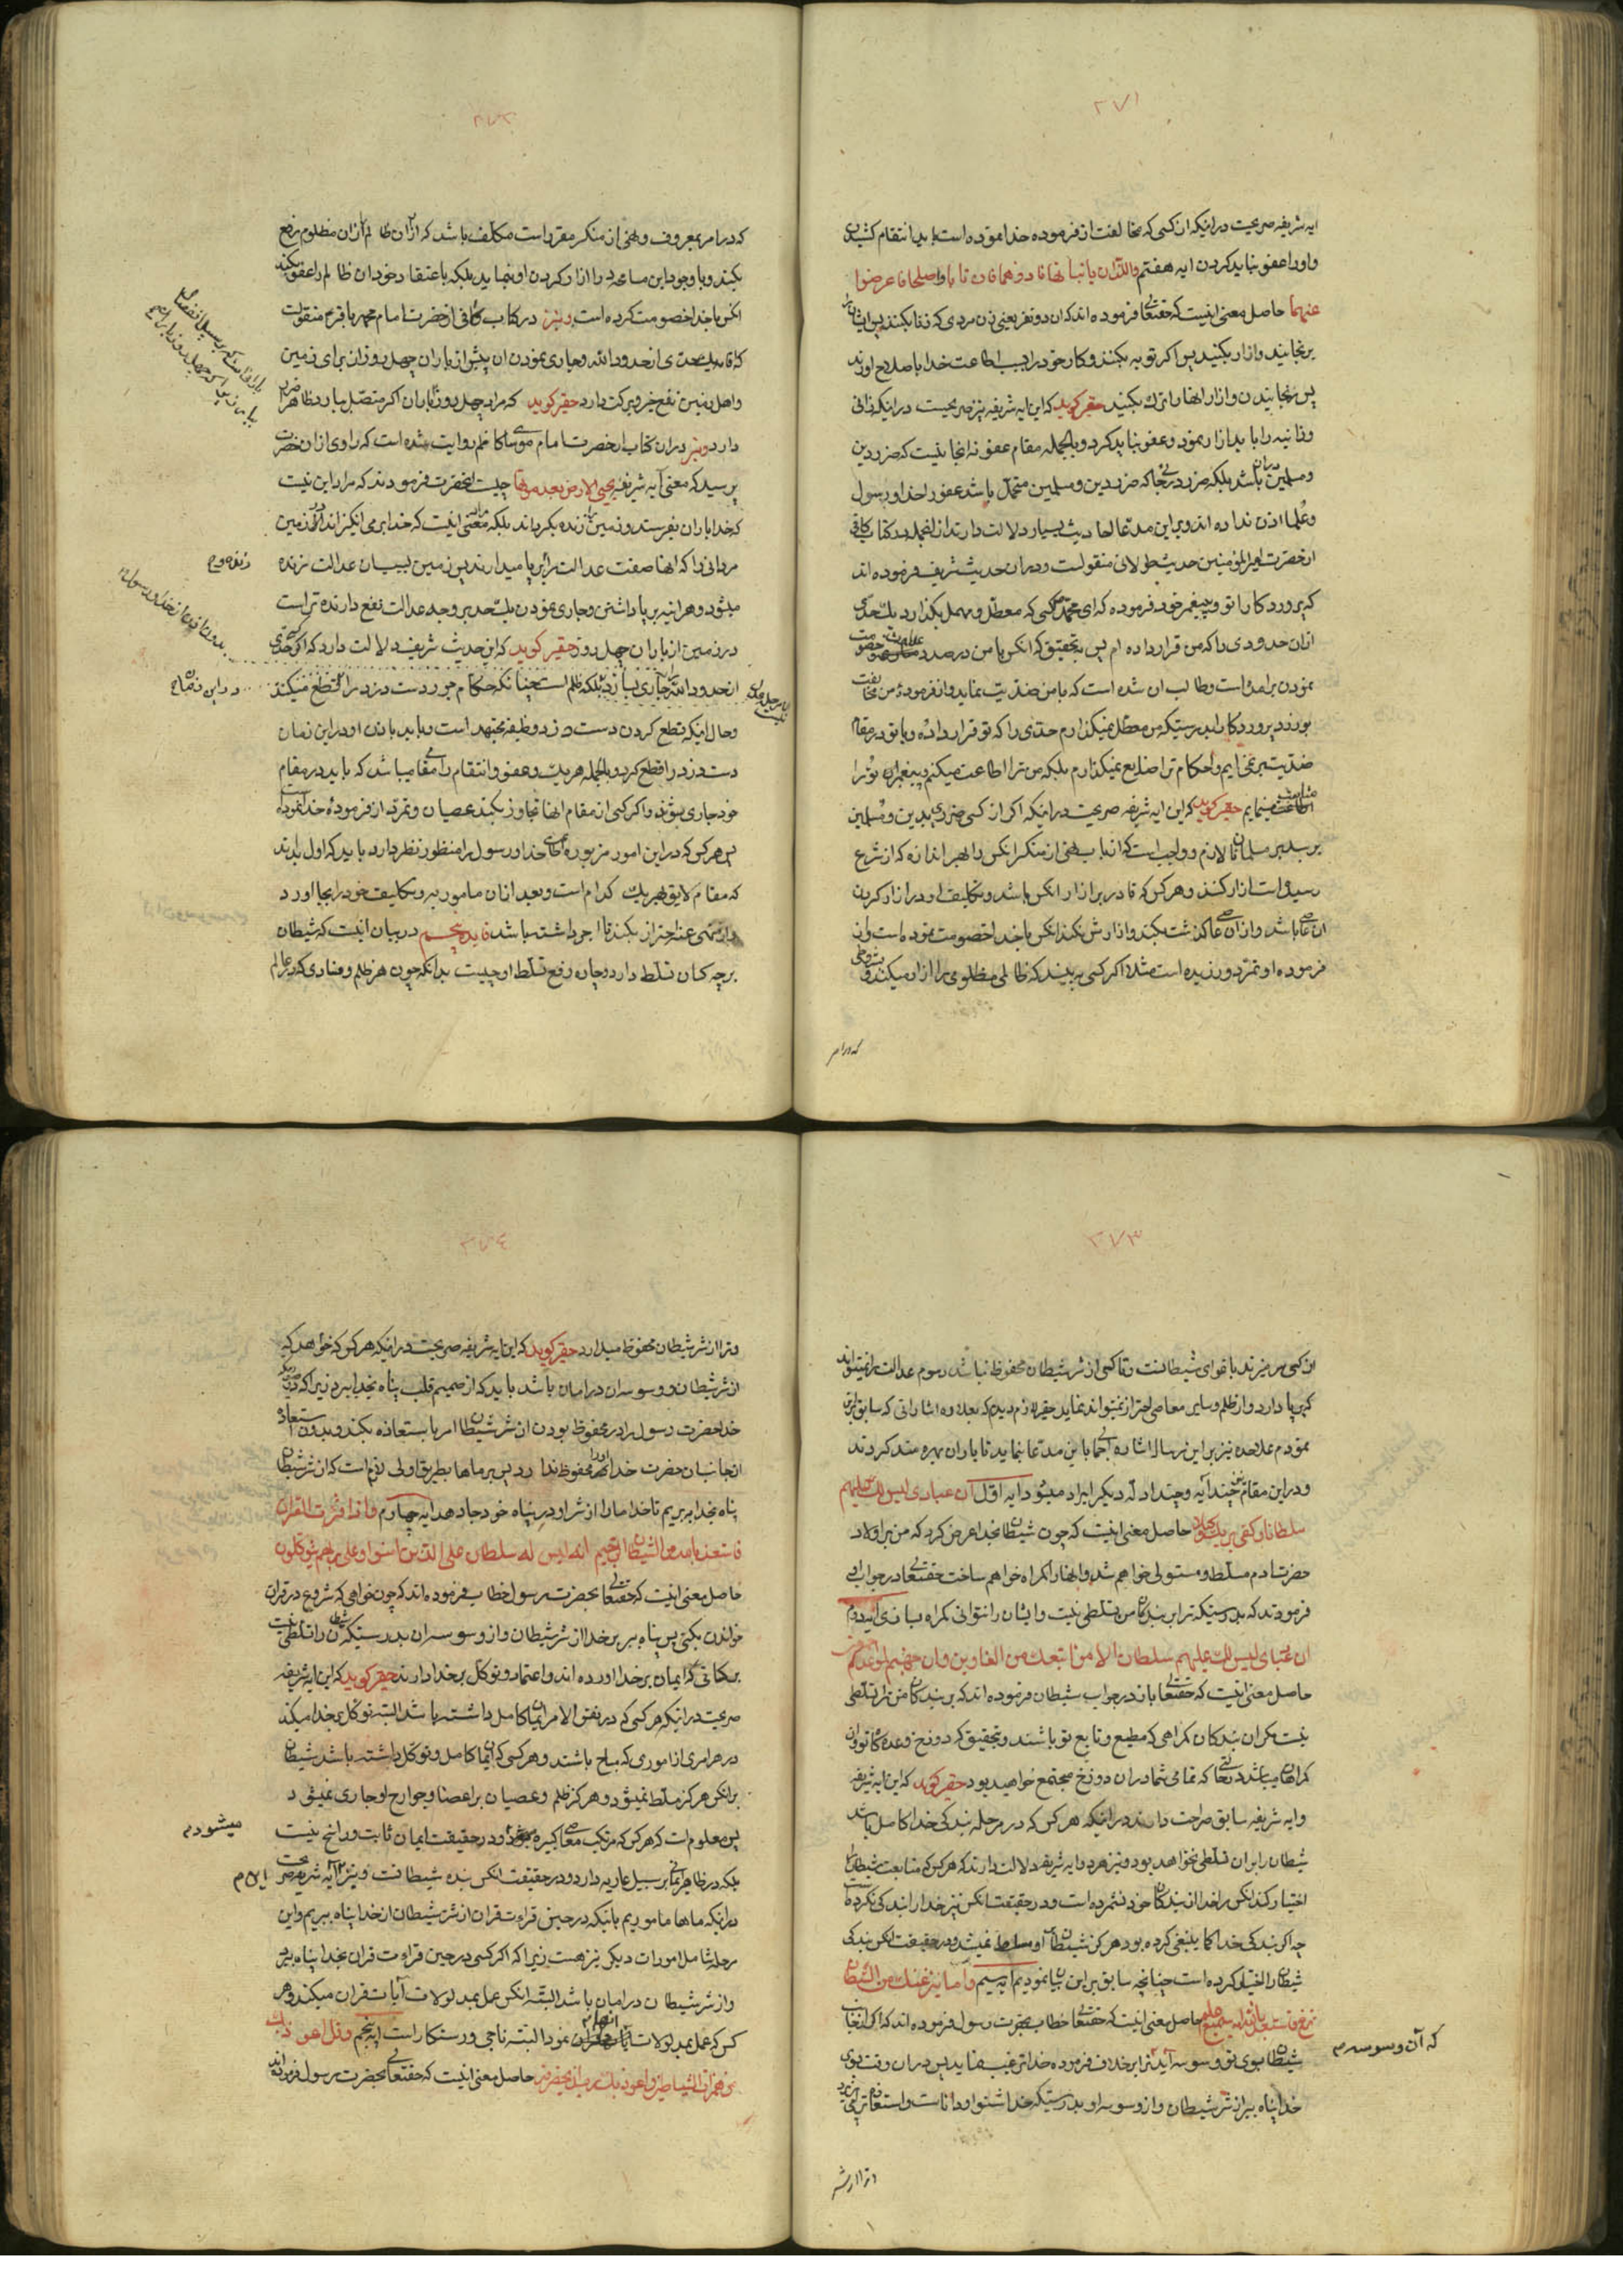 ۲۷۱
ایه شریفه صریحت در اینکه ان کسی که مخالفت از فرموده خدا نموده است باید انتقام کشیدن
و او را عفو نباید کردن ایه هفتم والّذان یاتیانها فاذوهما فان تابا واصلحا فاعرضوا
عنهما حاصل معنی اینست که حقتعالی فرموده اند که ان دو نفر یعنی زن مردی که زنا بکنند پس ایشان را
برنجانید و ازار بکنید پس اگر توبه بکنند و کار خود را بسبب اطاعت خدا باصلاح اورند
پس رنجانیدن و ازار انها را ترک بکنید حقیر کوید که این ایه شریفه نیز صریحیست در اینکه زانی
و زانیه را باید ازار نمود و عفو نباید کرد و بالجمله مقام عفو نه انجا نیست که ضرر دین
و مسلمین دران باشد بلکه هرزه درنجا که ضرر دین و مسلمین متحمّل باشد عفو را خدا و رسول
و علما اذن نداده اند و براین مدّعا احادیث بسیار دلالت دارند از انجمله در کتاب کافی
از حضرت امیرالمؤمنین حدیث طولانی منقولست و دران حدیث شریف فرموده اند
که پروردکارا تو به پیغمبر خود فرموده که ای محمّد کسی که معطّل و مهمل بکذارد یک حدّی
ازان حدودی را که من قرار داده ام پس بتحقیق که انکس با من در صدد خصومت
نمودن برامده است و طالب ان شده است که با من ضدّیت بنماید و از فرمودۀ من مخالفت
بورزد پروردکارا بدرستیکه من معطّل نمیکذارم حدّی را که تو قرار داده و با تو در مقام
ضدّیت برنمی ایم و احکام ترا ضایع نمیکذارم بلکه من ترا اطاعت میکنم و پیغمبران تو را
متابعت مینمایم حقیر کوید که این ایه شریفه صریحت در اینکه اکر از کسی ضرری بدین و مسلمین
برسد بر مسلمانان لازم و واجب است که از باب نهی از منکر انکس را بهر اندازه که از شرع
رسیده است ازار کنند و هر کس که قادر بر ازار انکس باشد و بتکالیف او در ازار کردن
ان عاصی باشد و ازان عاصی کذشت بکند و ازارش نکند انکس با خدا خصومت نموده است و از
فرموده او تمرّد ورزیده است مثلا اکر کسی به بیند که ظالمی مظلومی را ازار میکند و بشرطی
که در امر
۲۷۲
که در امر بمعروف و نهی از منکر مقرر است مکلّف باشد که ازار ان ظالم را از ان مظلوم رفع
بکند و با وجود این مسامحه در ازار کردن او بنماید بلکه باعتقاد خود ان ظالم را عفو بکند
انکس با خدا خصومت کرده است و نیز در کتاب کافی از حضرت امام محمد باقر ع منقولست
که اقامه یک حدّی از حدود الله و جاری نمودن ان بیشتر از باران چهل روز ان برای زمین
و اهل زمین نفع خیر و برکت دارد حقیر کوید که مراد چهل روز باران اکر متصّل ببارد ظاهر ضرر
دارد و نیز دران کتاب از حضرت امام موسی کاظم روایت شده است که راوی ازان حضرت
پرسید که معنی ایه شریفه یحیی الارض بعد موتها چیست انحضرت فرمودند که مراد این نیست
که خدا باران بفرستد و زمین را زنده بکرداند بلکه معنی اینست که خدا برمی انکیزاند از زمین
مردانی را که انها صفت عدالت را برپا میدارند پس زمین بسبب ان عدالت زنده
زنده و م
میشود و هرانیه برپا داشتن و جاری نمودن یک حد بر وجه عدالت نفع دارنده تر است
در زمین از باران چهل روز حقیر کوید که این حدیث شریف دلالت دارد که اکر کسی حدّی
از حدود الله را جاری بسازد بلکه ظلم است چنانکه حکام جور دست دزد را قطع میکنند
و حال اینکه قطع کردن دست دزد وظیفه مجتهد است و باید باذن او در این زمان
دست دزد را قطع کرد و بالجمله هر یک و عفو و انتقام را مقامی میباشد که باید در مقام
خود جاری بشوند و اکر کسی از مقام انها تجاوز بکند عصیان و تمرّد از فرمودۀ خدا نموده است
پس هر کس که در این امور مزبوره رضای خدا و رسول را منظور نظر دارد باید که اول بداند
که مقام لایق بهر یک کدام است و بعد ازان مامور به و تکالیف خود را بجا اورد
و از منهی عنه احتراز بکند تا اجر داشته باشد فایده پنجم در بیان اینست که شیطان
بر چه کسان تسلّط دارد و چاره رفع تسلّط او چیست بدانکه چون هر ظلم و فسادی که در عالم
۲۷۳
از کسی سر میزند باغوای شیطانست و تا کسی از شر شیطان محفوظ نباشد رسوم عدالت را نمیتواند
که برپا دارد و از ظلم و سایر معاصی احتراز نمیتواند نماید حقیر لازم دیدم که بعلاوه اشاراتی که سابق براین
نمودم علاحده نیز بر این رساله اشاره اجمالی باین مدّعا نماید تا یاران بهره مند کردند
و در این مقام نیز چند ایه و چند ادلّه دیکر ایراد میشود ایه اوّل ان عبادی لیس لک علیهم
سلطان و کفی بربک وکیلا حاصل معنی اینست که چون شیطان بخدا عرض کرد که من بر اولاد
حضرت ادم مسلّط و مستولی خواهم شد و انها را کمراه خواهم ساخت حقتعالی در جواب او
فرمودند که بدرستیکه ترا بر بندکان من تسلّطی نیست و ایشان را نتوانی کمراه بسازی ایه دوم
ان عبادی لیس لک علیهم سلطان الا من اتبعک من الغاوین وان جهنم لموعدهم اجمعین
حاصل معنی اینست که حقتعالی باز در جواب شیطان فرموده اند که بر بندکان من ترا تسلّطی
نیست مکر ان بندکان کمراهی که مطیع و تابع تو باشند و بتحقیق که دوزخ وعده کاه تو و ان
کمراهان میباشد در انجا که تمامی شما در ان دوزخ مجتمع خواهید بود حقیر کوید که این ایه شریفه
و ایه شریفه سابق صراحت دارند در اینکه هر کس که در مرحله بندکی خدا کامل باشد
شیطان را بر ان تسلّطی نخواهد بود و نیز هر دو ایه شریفه دلالت دارند که هر کس که متابعت شیطان را
اختیار کند انکس را خدا از بندکان خود نشمرده است و در حقیقت انکس نیز خدا را بندکی نکرده است
چه اکر بندکی خدا کما ینبغی کرده بود هرکز شیطان باو مسلط نمیشد و در حقیقت انکس بندکی
شیطان را اختیار کرده است چنانچه سابق بر این بیان نمودیم ایه سیم واما ینزغنک من الشیطان
نزغ فاستعذ بالله انه سمیع علیم حاصل معنی اینست که حقتعالی خطاب بحضرت رسول فرموده اند که اکر از جانب
شیطان بسوی تو وسوسه آید ترا بر خلاف فرموده خدا ترغیب نماید پس دران وقت بسوی
که آن وسوسه م
خدا پناه ببر از شر شیطان و از وسوسه او بدرستیکه خدا شنوا و داناست و استعاذه ترا می پذیرد
و ترا از شر
۲۷۴
و ترا از شر شیطان محفوظ میدارد حقیر کوید که این ایه شریفه صریحت در اینکه هر کس که خواهد که
از شر شیطان و وسوسه ان در امان باشد باید که از صمیم قلب پناه بخدا ببرد زیرا که در صورتیکه
خدا حضرت رسول را در محفوظ بودن از شر شیطان امر باستعاذه بکند و بدون استعاذه
از جانب ان حضرت خدا او را محفوظ ندارد پس بر ماها بطریق اولی لازم است که از شر شیطان
پناه بخدا ببریم تا خدا ما را از شر او در پناه خود جا دهد ایه چهارم واذا قرئت القران
فاستعذ بالله من الشیطان الرّجیم انه لیس له سلطان علی الذین امنوا وعلی ربهم یتوکلون
حاصل معنی اینست که حقتعالی بحضرت رسول خطاب فرموده اند که چون خواهی که شروع در قران
خواندن بکنی پس پناه ببر بر خدا از شر شیطان و از وسوسه ان بدرستیکه شیطان را تسلّطی نیست
بر کسانی که ایمان بر خدا اورده اند و اعتماد و توکل بر خدا دارند حقیر کوید که این ایه شریفه
صریحت در اینکه هر کسی که در نفس الامر ایمان کامل داشته باشد البته توکل بر خدا میکند
در هر امری از اموری که مباح باشند و هر کسی که ایمان کامل و توکل داشته باشد شیطان
بر انکس هرکز مسلّط نمیشود و هرکز ظلم و عصیان بر اعضا و جوارح او جاری نمیشود
پس معلوم است که هر کس که مرتکب معاصی کبیره میشود در حقیقت ایمان ثابت و راسخ نیست
میشود م
بلکه در ظاهر ایمانی بر سبیل عاریه دارد و در حقیقت انکس بنده شیطانست و نیز این ایه شریفه صریحست
این م
در اینکه ماها ماموریم باینکه در حین قراءت قران از شر شیطان از خدا پناه ببریم و این
مرحله شامل امورات دیکر نیز هست زیرا که اکر کسی در حین قراءت قران بخدا پناه ببرد
و از شر شیطان در امان باشد البتّه انکس عمل بمدلولات آیات قران میکند و هر
کس که عمل بمدلولات انها نمود البته ناجی و رستکار است ایه پنجم وقل اعوذ بک
من همزات الشیاطین واعوذ بک رب ان یحضرون حاصل معنی اینست که حقتعالی بحضرت رسول فرموده اند